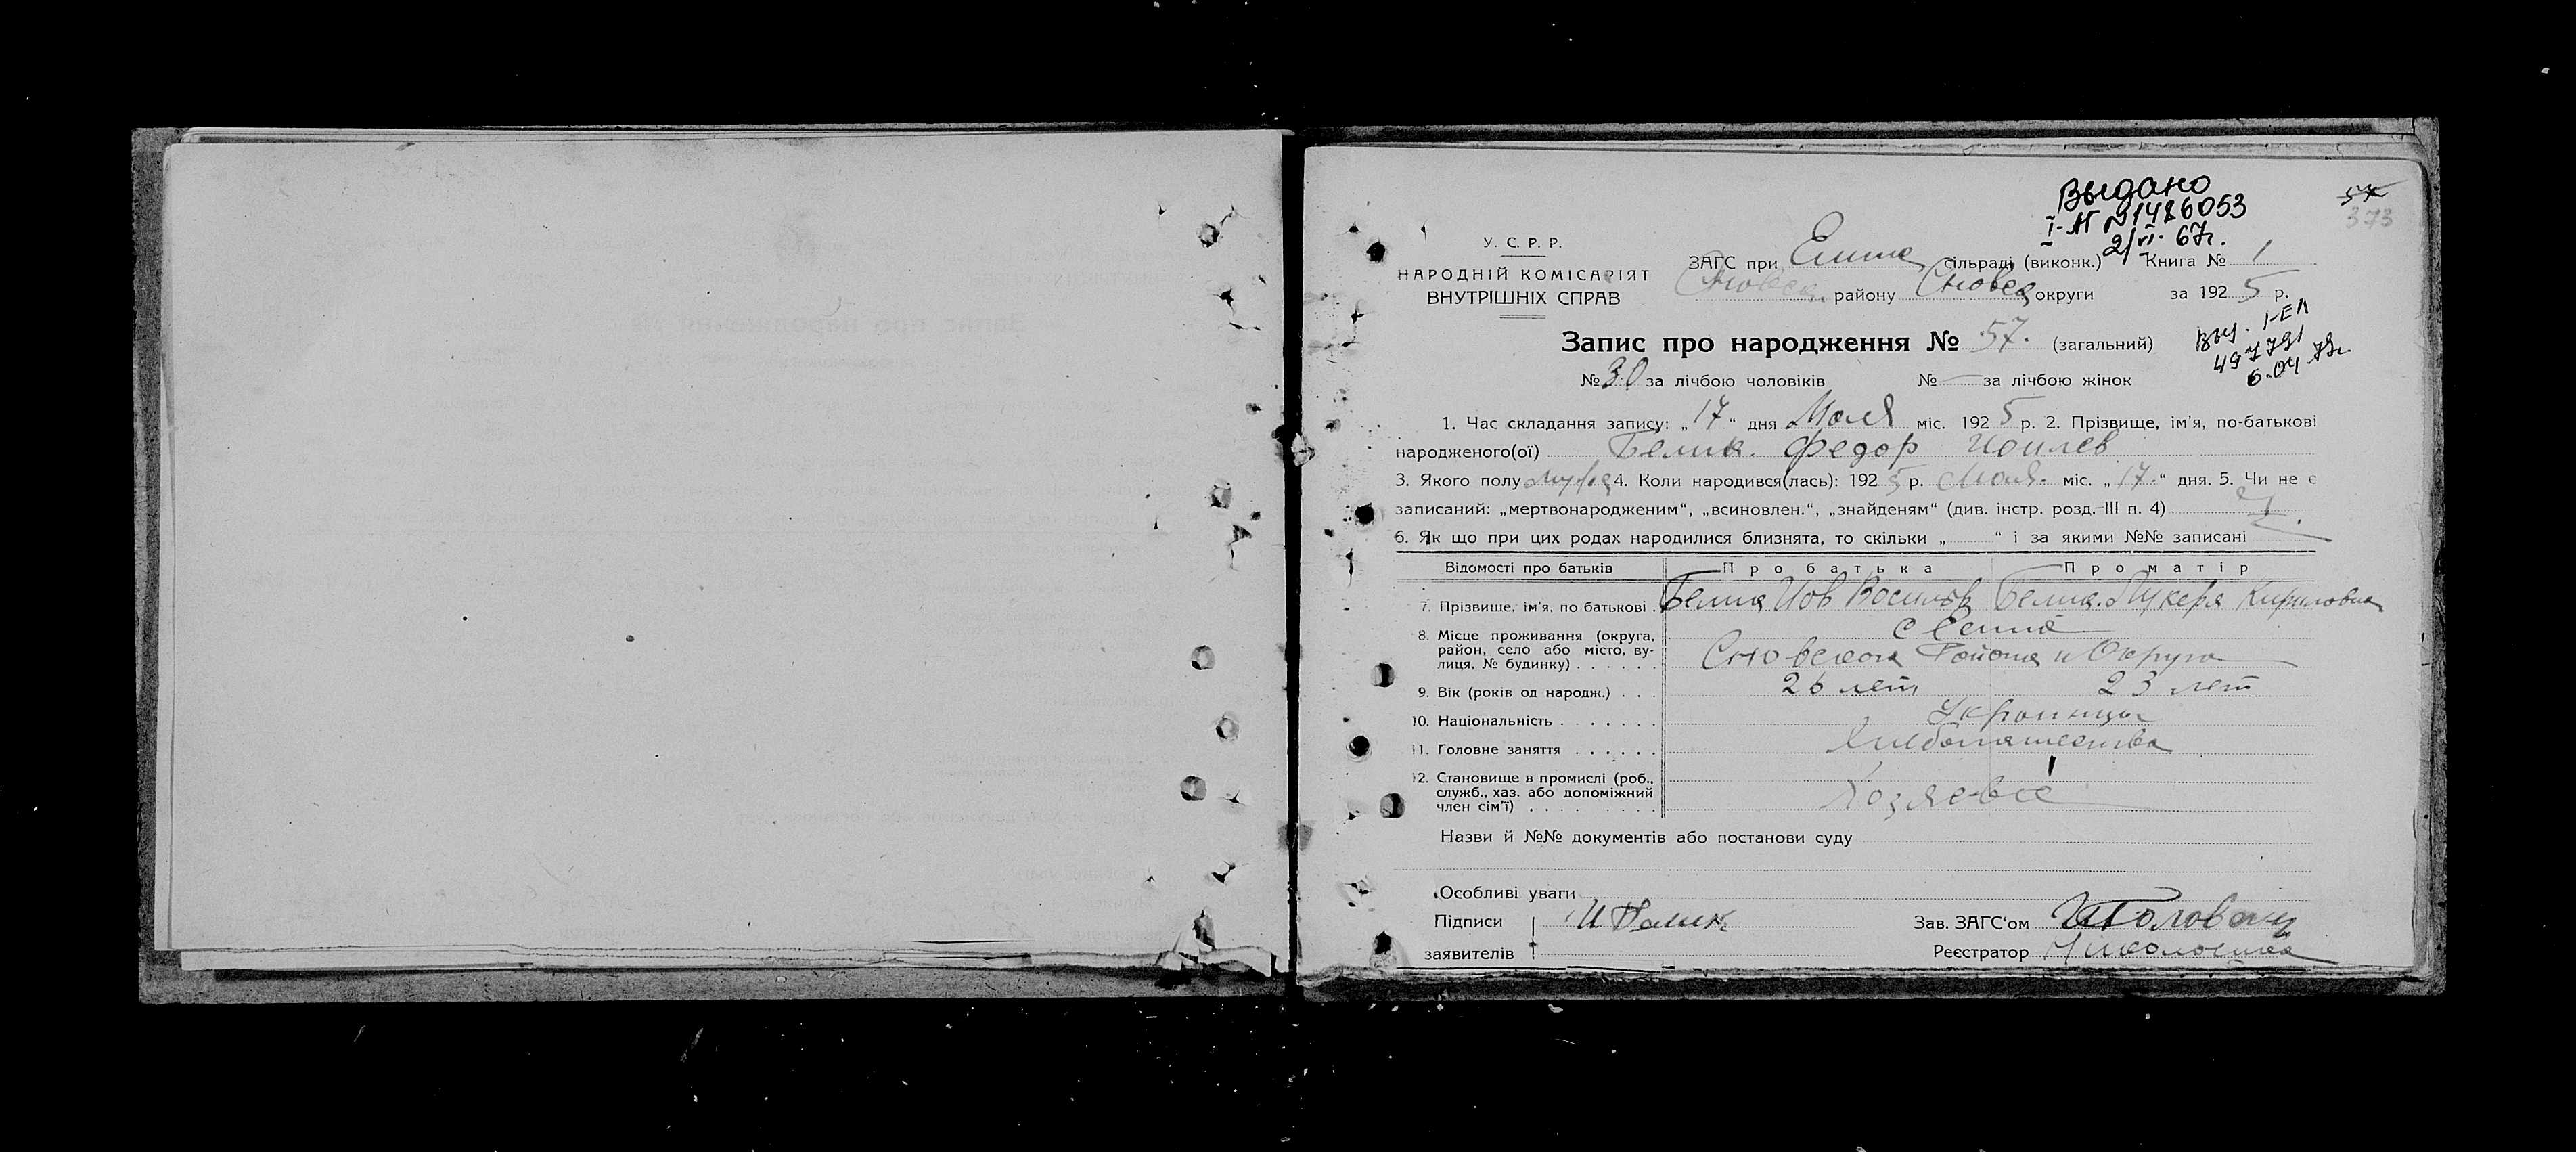 Выдано
I-АГ №1486053
2/VI. 67г.
57
373
У. С. Р. Р.
НАРОДНІЙ КОМІСАРІЯТ
ВНУТРІШНІХ СПРАВ
ЗАГС при Елине сільраді (виконк.) Книга № 1
Сновск. району Сновск округи за 1925 р.
Запис про народження № 57. (загальний)
Выд. I-ЕЛ
497791
6.04.79г.
№ 30 за лічбою чоловіків № — за лічбою жінок
1. Час складання запису: „17“ дня Мая міс. 1925 р. 2. Прізвище, ім'я, по-батькові
народженого(ої) Белик. Федор Иовлев
3. Якого полу муж 4. Коли народився(лась): 1925 р. Мая. міс. „17.“ дня. 5. Чи не є
записаний: „мертвонародженим“, „всиновлен.“, „знайденям“ (див. інстр. розд. III п. 4)
6. Як що при цих родах народилися близнята, то скільки „ “ і за якими №№ записані
Відомості про батьків Про батька Про матір
7. Прізвище, ім'я, по батькові Белик Иов Васильев Белик. Лукеря Кириловна
8. Місце проживання (округа, район, село або місто, вулиця, № будинку) с Елине
Сновского Района и Округа
9. Вік (років од народж.) 26 лет 23 лет
10. Національність Украинцы
11. Головне заняття Хлебопашества
12. Становище в промислі (роб., служб., хаз. або допоміжний член сім'ї) Хозяеве
Назви й №№ документів або постанови суду
Особливі уваги
Підписи И Белик Зав. ЗАГС'ом
заявителів Реєстратор